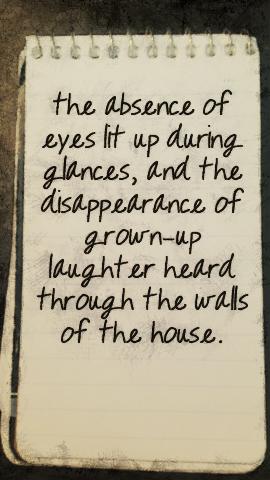 the absence of
eyes lit up during
glances, and the
disappearance of
grown-up
laughter heard
through the walls
of the house.